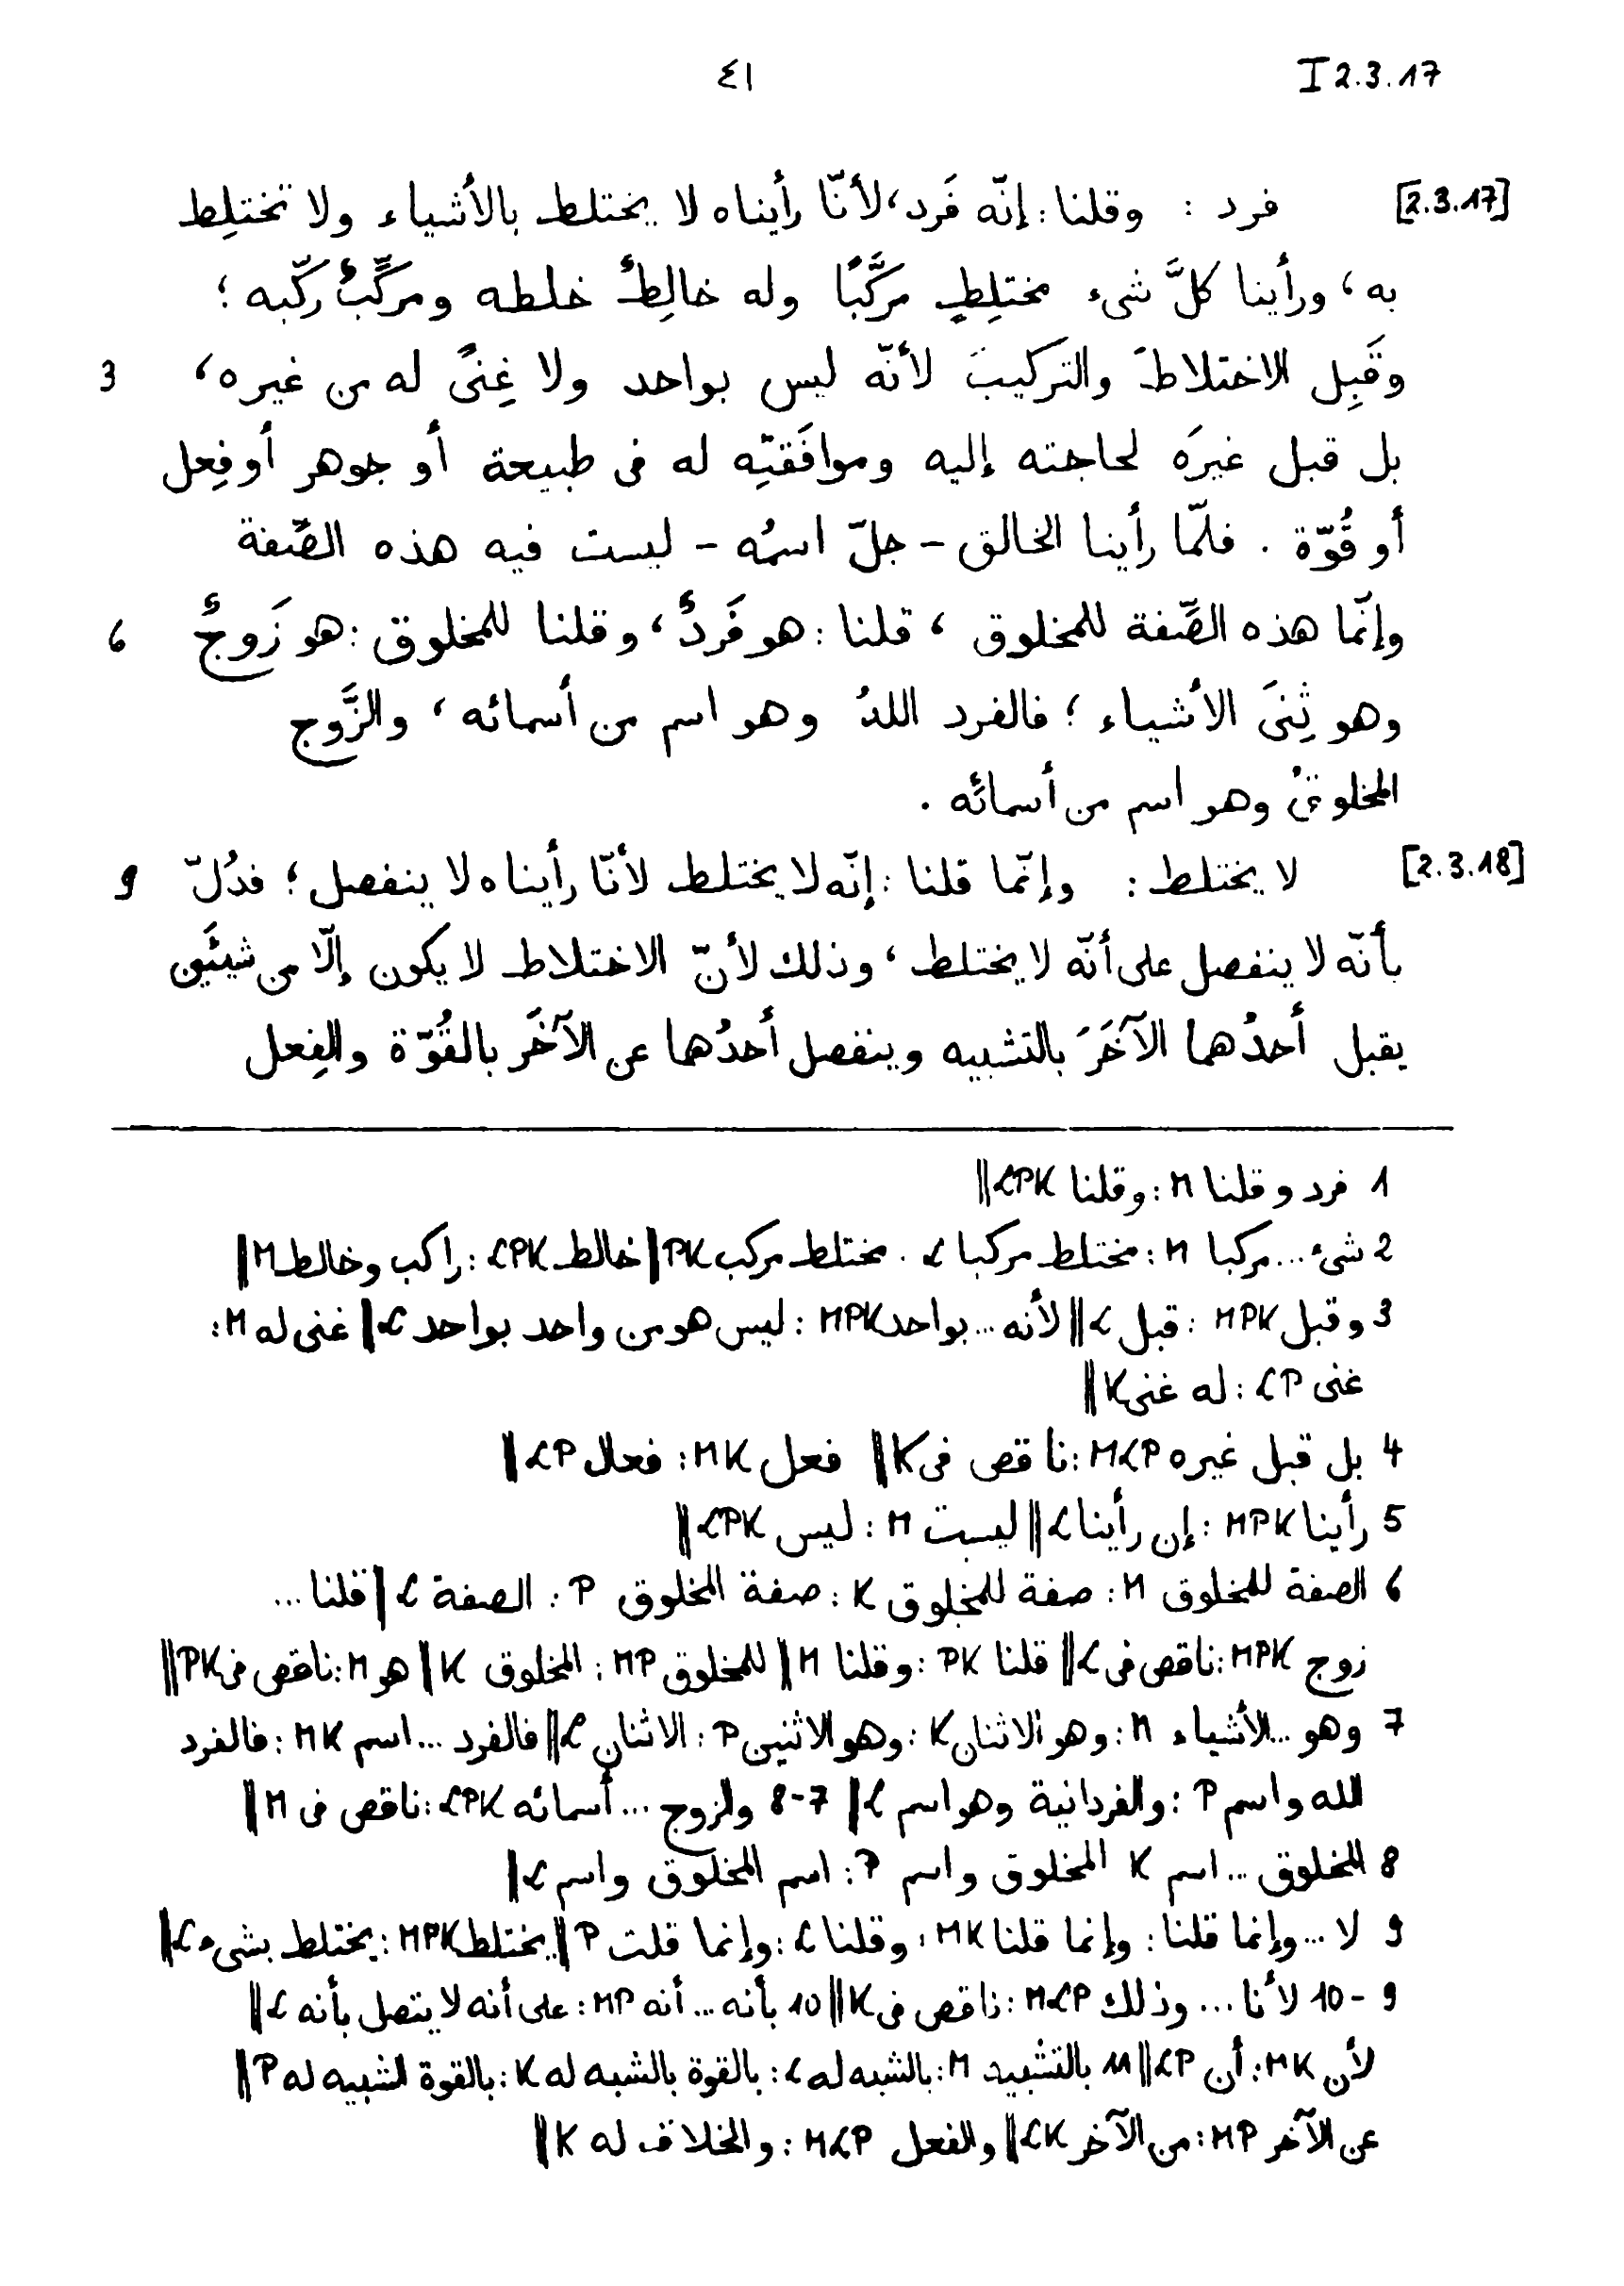 I 2.3.17 ٤١
[2.3.17] فرد : وقلنا : إنّه فَرد، لأنّا رأيناه لا يختلط بالأشياء ولا تختلِط
به، ورأينا كلَّ شىء مختلِطٍ مركَّبًا وله خالِطٌ خلطه ومركِّبٌ ركّبه ؛
3 وقَبِل الاختلاطَ والتركيبَ لأنّه ليس بواحد ولا غِنىً له من غيره،
بل قبل غيرَه لحاجته إليه وموافَقتِه له فى طبيعة أو جوهر أو فِعل
أو قُوّة . فلمّا رأينا الخالق - جلّ اسمُه - ليست فيه هذه الصِّفة
6 وإنّما هذه الصِّفة للمخلوق، قلنا : هو فَردٌ، وقلنا للمخلوق : هو زَوجٌ
وهو ثِنَى الأشياء ؛ فالفرد اللهُ وهو اسم من أسمائه، والزَّوج
المخلوقُ وهو اسم من أسمائه .
9 [2.3.18] لا يختلط : وإنّما قلنا : إنّه لا يختلط لأنّا رأيناه لا ينفصل ؛ فدُلّ
بأنّه لا ينفصل على أنّه لا يختلط، وذلك لأنّ الاختلاط لا يكون إلّا من شيئَين
يقبل أحدُهما الآخَرَ بالتشبيه وينفصل أحدُهما عن الآخَر بالقُوّة والفِعل
1 فرد وقلنا M : وقلنا LPK ||
2 شىء ... مركبا M : مختلط مركبا L . مختلط مركب PK | خالط LPK : راكب وخالط M ||
3 وقبل MPK : قبل L || لأنه ... بواحد MPK : ليس هو من واحد بواحد L | غنى له M :
غنى LP : له غنى K ||
4 بل قبل غيره MLP : ناقص فى K || فعل MK : فعال LP ||
5 رأينا MPK : إن رأينا L || ليست M : ليس LPK ||
6 الصفة للمخلوق M : صفة للمخلوق K : صفة المخلوق P : الصفة L | قلنا ...
زوج MPK : ناقص فى L || قلنا PK : وقلنا M || للمخلوق MP : المخلوق K | هو M : ناقص فى PK ||
7 وهو ... الأشياء M : وهو الاثنان K : وهو الاثنين P : الاثنان L || فالفرد ... اسم MK : فالفرد
لله واسم P : والفردانية وهو اسم L || 7-8 والزوج ... أسمائه LPK : ناقص فى M ||
8 للخلوق ... اسم K المخلوق واسم P : اسم المخلوق واسم L ||
9 لا ... وإنما قلنا : وإنما قلنا MK : وقلنا L : وإنما قلت P || يختلط MPK : يختلط بشىء L ||
9-10 لأنا ... وذلك MLP : ناقص فى K || 10 بأنه ... أنه MP : على أنه لا يتصل بأنه L ||
لأن MK : أن LP || 11 بالتشبيه M : بالشبه له L : بالقوة بالشبه له K : بالقوة الشبيه له P ||
عن الآخر MP : من الآخر LK || والفعل MLP : والخلاف له K ||